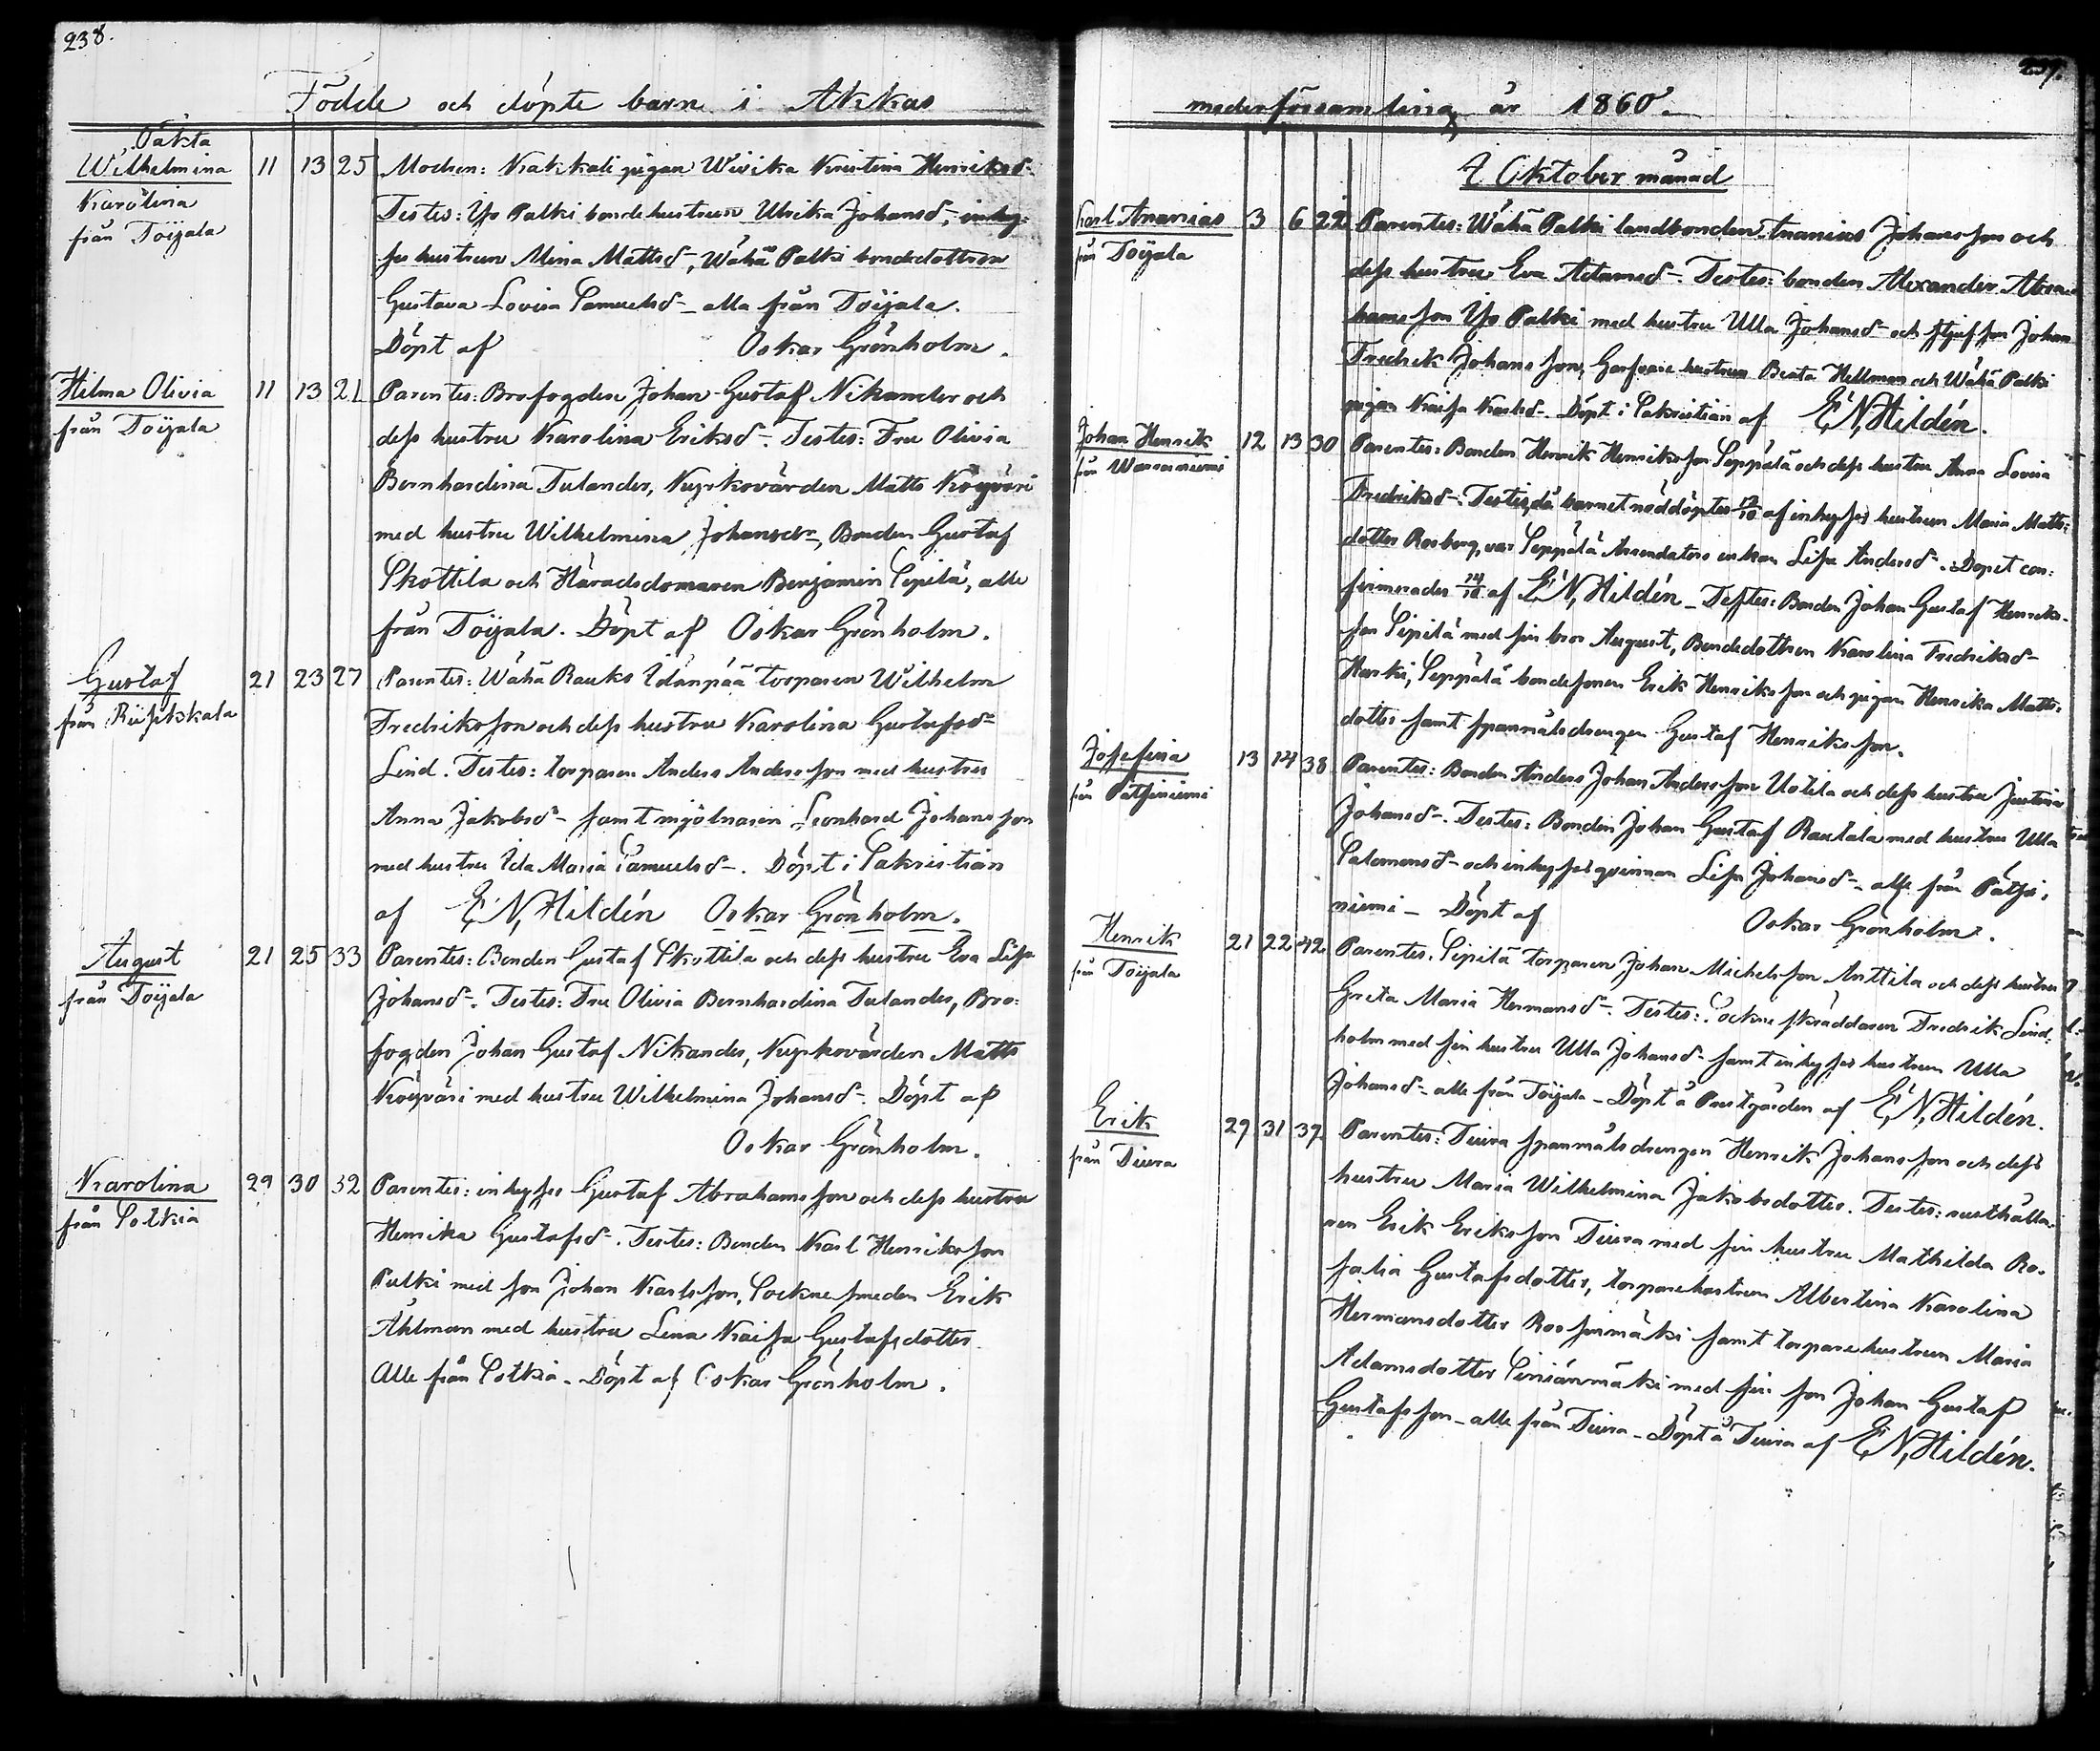 238.
Födde och döpte barn i Akkas
Oäkta
Wilhelmina
Karolina
från Toijala
11 13 25
Modren: Kakkali pigan Wivika Kristina Henriksd-
Testes: Yli Palki bondehustrun Ulrika Johansd-, inhy-
ses hustrun Mina Mattsd-, Wähä Palki bondedottren
Gustava Lovisa Samuelsd- alla från Toijala.
Döpt af Oskar Grönholm.
Hilma Olivia
från Toijala
11 13 21
Parentes: Brofogden Johan Gustaf Nikander och
dess hustru Karolina Eriksd-. Testes: Fru Olivia
Bernhardina Tulander, Kyrkovärden Matts Köyväri
med hustru Wilhelmina Johansdr-, Bonden Gustaf
Skottila och Häradsdomaren Benjamin Sipilä, alle
från Toijala. Döpt af Oskar Grönholm.
Gustaf
från
21 23 27
Parentes: Wähä Rauko Idänpää torparen Wilhelm
Fredriksson och dess hustru Karolina Gustafsd-
Lind. Testes: torparen Anders Andersson med hustru
Anna Jakobsd- samt mjölnaren Leonhard Johansson
med hustru Ida Maria Samuelsd-. Döpt i Sakristian
af E. N. Hildén Oskar Grönholm.
August
från Toijala
21 25 33
Parentes: Bonden Gustaf Skottila och dess hustru Eva Lisa
Johansd-. Testes: Fru Olivia Bernhardina Tulander, Bro-
fogden Johan Gustaf Nikander, Kyrkovärden Matts
Köyväri med hustru Wilhelmina Johansd-. Döpt af
Oskar Grönholm.
Karolina
från Sotkia
29 30 32
Parentes: inhyses Gustaf Abrahamsson och dess hustru
Henrika Gustafsd-. Testes: Bonden Karl Henriksson
Pulki med son Johan Karlsson, Socknesmeden Erik
Åhlman med hustru Lena Kaisa Gustafsdotter.
Alle från Sotkia. Döpt af Oskar Grönholm.
239.
moderförsamling år 1860.
I Oktober månad
Karl Ananias
från Toijala
3 6 22
Parentes: Wähä Palki landbonden Ananias Johansson och
dess hustru Eva Adamsd-. Testes: bonden Alexander Abra-
hamsson Yli Palki med hustru Ulla Johansd- och stjufson Johan
Fredrik Johansson, Garfvare hustrun Beata Hellman och Wähä Palki
pigan Kaisa Karlsd-. Döpt i Sakristian af E. N. Hildén.
Johan Henrik
från
12 13 30
Parentes: Bonden Henrik Henriksson Seppälä och dess hustru Anna Lovisa
Fredriksd-. Testes, då barnet nöddöptes 12/10 af inhyses hustrun Maria Matts-
dotter Rosberg, var Seppälä Arrendators enkan Lisa Andersd-. Dopet con-
firmerades 14/10 af E. N. Hildén. Testes: Bonden Johan Gustaf Henriks-
son Sipilä med sin bror August, Bondedottren Karolina Fredriksd-
Heriki, Seppälä bondesonen Erik Henriksson och pigan Henrika Matts-
dotter samt spannmålsdrengen Gustaf Henriksson.
Josefina
från Pätsiniemi
13 14 38
Parentes: Bonden Anders Johan Andersson Uotila och dess hustru Justina
Johansd-. Testes: Bonden Johan Gustaf Rautala med hustru Ulla
Salomonsd- och inhysesqvinnan Lisa Johansd- alla från Pätsi-
niemi - Döpt af Oskar Grönholm.
Henrik
från Toijala
21 22 42
Parentes: Sipilä torparen Johan Michelsson Anttila och dess hustru
Greta Maria Hermansd-. Testes: Sockneskräddaren Fredrik Lind-
holm med sin hustru Ulla Johansd- samt inhyses hustrun Ulla
Johansd- alle från Toijala - Döpt å Prestgården af E. N. Hildén.
Erik
från Siura
29 31 37
Parentes: Siura spannmålsdrengen Henrik Johansson och dess
hustru Maria Wilhelmina Jakobsdotter. Testes: rusthålla-
ren Erik Eriksson Siura med sin hustru Mathilda Ro-
salia Gustafsdotter, torparehustrun Albertina Karolina
Hermansdotter Roosinmäki samt torparehustrun Maria
Adamsdotter med sin son Johan Gustaf
Gustafsson - alle från Siura - Döpt å Siura af E. N. Hildén.